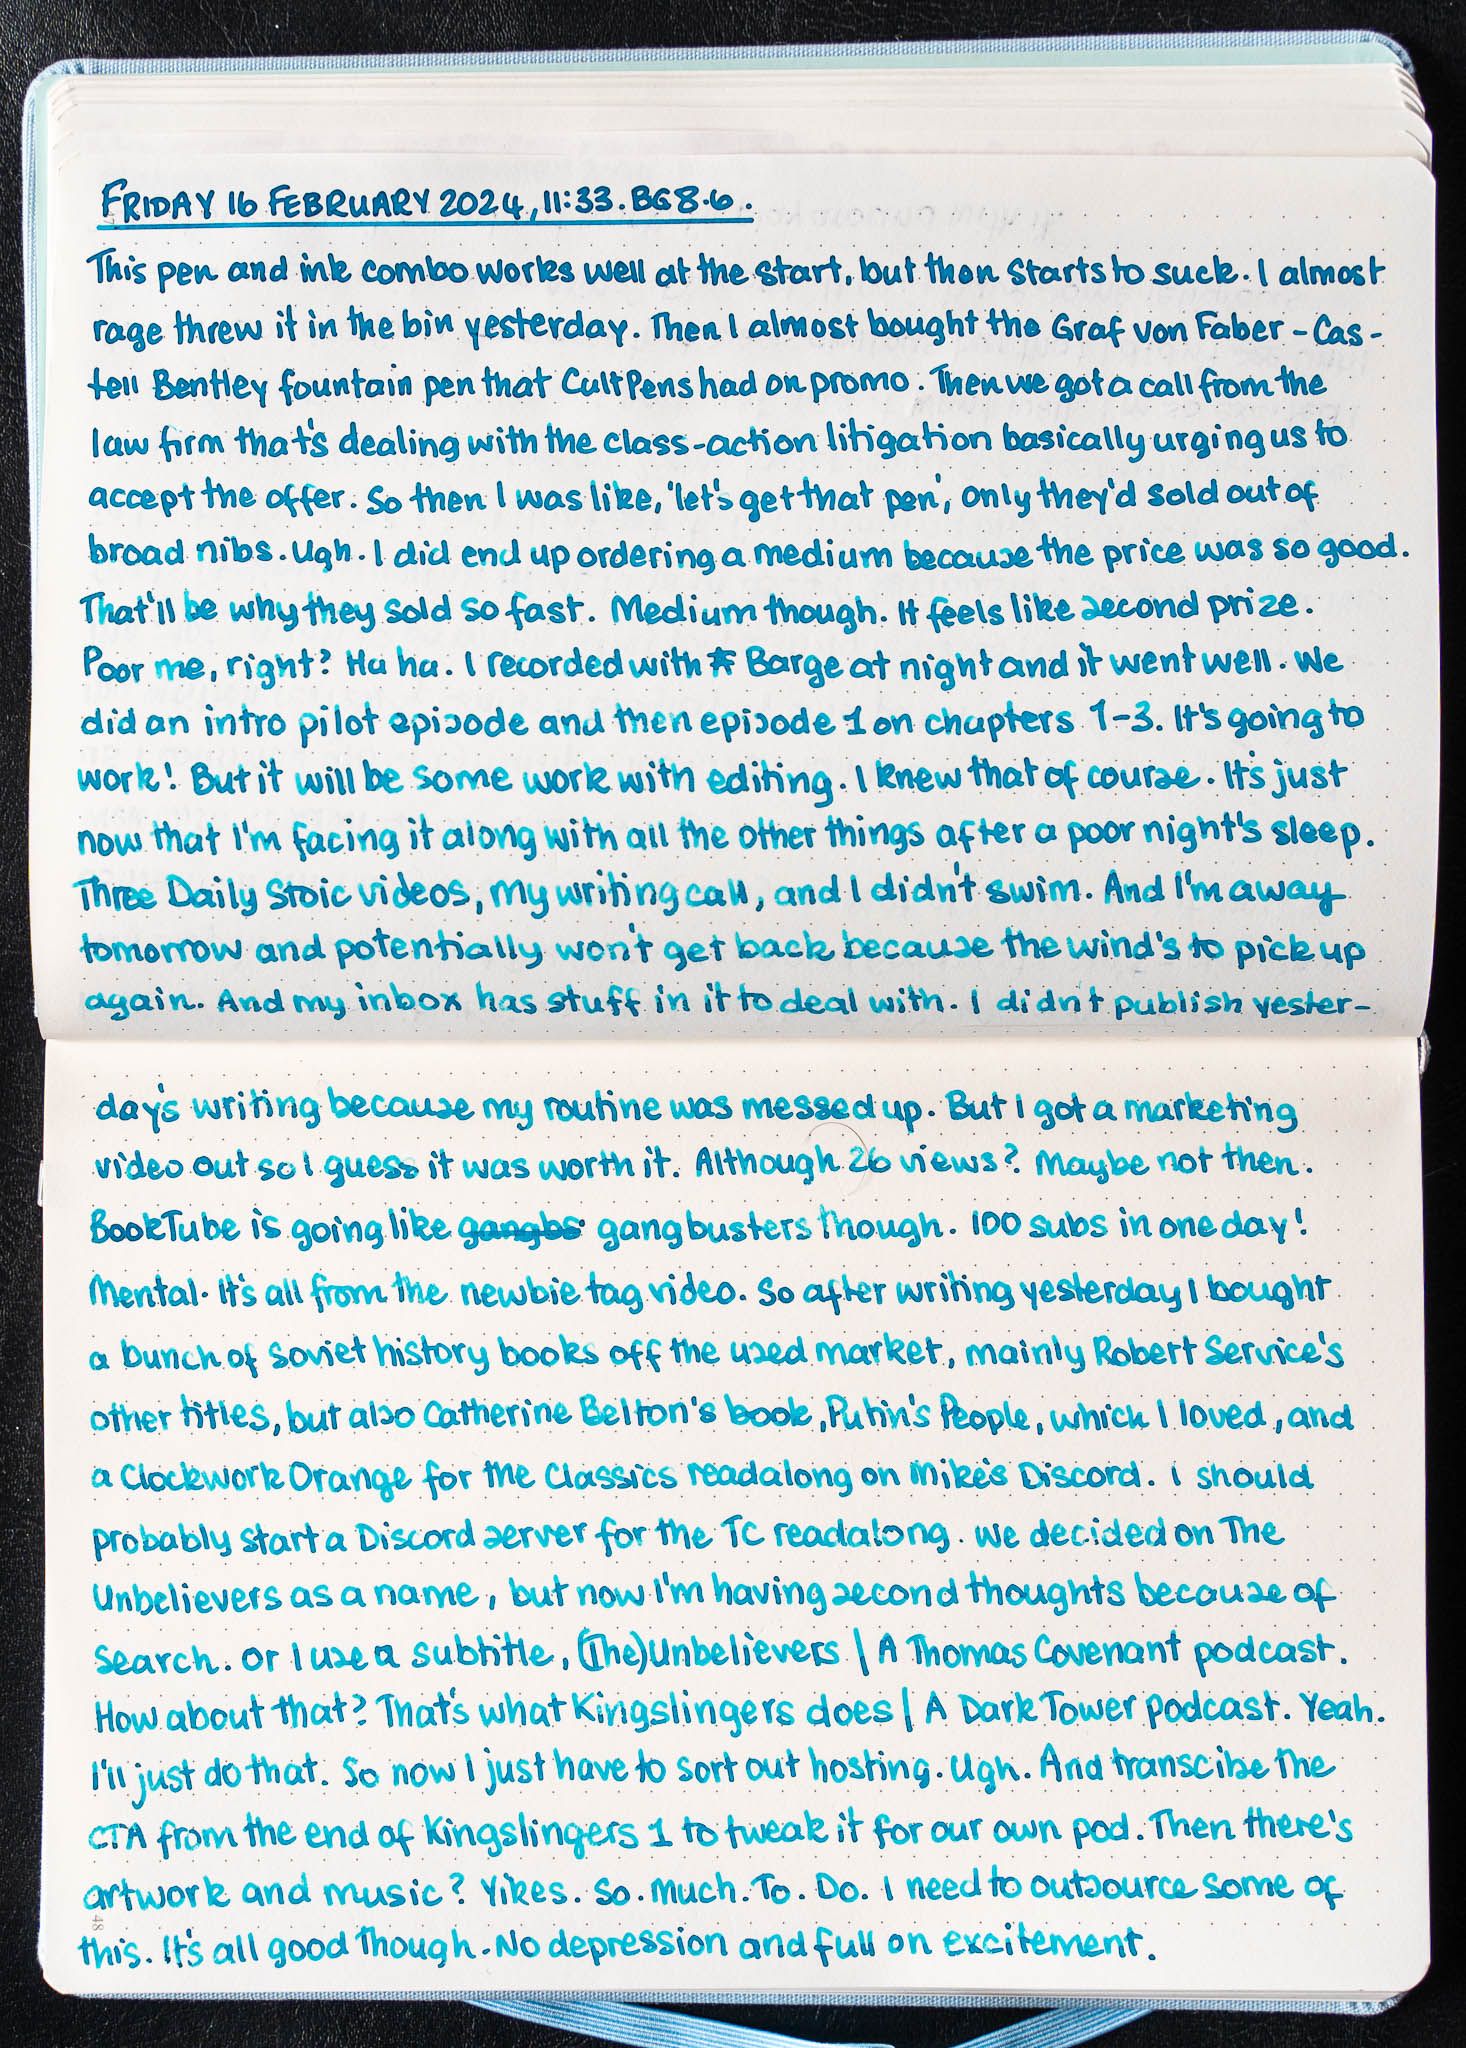 FRIDAY 16 FEBRUARY 2024, 11:33. BG 8.6.
This pen and ink combo works well at the start, but then starts to suck. I almost
rage threw it in the bin yesterday. Then I almost bought the Graf von Faber-Cas-
tell Bentley fountain pen that CultPens had on promo. Then we got a call from the
law firm that's dealing with the class-action litigation basically urging us to
accept the offer. So then I was like, 'let's get that pen', only they'd sold out of
broad nibs. Ugh. I did end up ordering a medium because the price was so good.
That'll be why they sold so fast. Medium though. It feels like second prize.
Poor me, right? Ha ha. I recorded with Barge at night and it went well. We
did an intro pilot episode and then episode 1 on chapters 1-3. It's going to
work! But it will be some work with editing. I knew that of course. It's just
now that I'm facing it along with all the other things after a poor night's sleep.
Three Daily Stoic videos, my writing call, and I didn't swim. And I'm away
tomorrow and potentially won't get back because the wind's to pick up
again. And my inbox has stuff in it to deal with. I didn't publish yester-
day's writing because my routine was messed up. But I got a marketing
video out so I guess it was worth it. Although 26 views? Maybe not then.
BookTube is going like gangbs gangbusters though. 100 subs in one day!
Mental. It's all from the newbie tag video. So after writing yesterday I bought
a bunch of Soviet history books off the used market, mainly Robert Service's
other titles, but also Catherine Belton's book, Putin's People, which I loved, and
a Clockwork Orange for the Classics readalong on Mike's Discord. I should
probably start a Discord server for the TC readalong. We decided on The
Unbelievers as a name, but now I'm having second thoughts because of
search. Or I use a subtitle, (The) Unbelievers | A Thomas Covenant podcast.
How about that? That's what Kingslingers does | A Dark Tower Podcast. Yeah.
I'll just do that. So now I just have to sort out hosting. Ugh. And transcibe the
CTA from the end of Kingslingers 1 to tweak it for our own pod. Then there's
artwork and music? Yikes. So. Much. To. Do. I need to outsource some of
48
this. It's all good though. No depression and full on excitement.